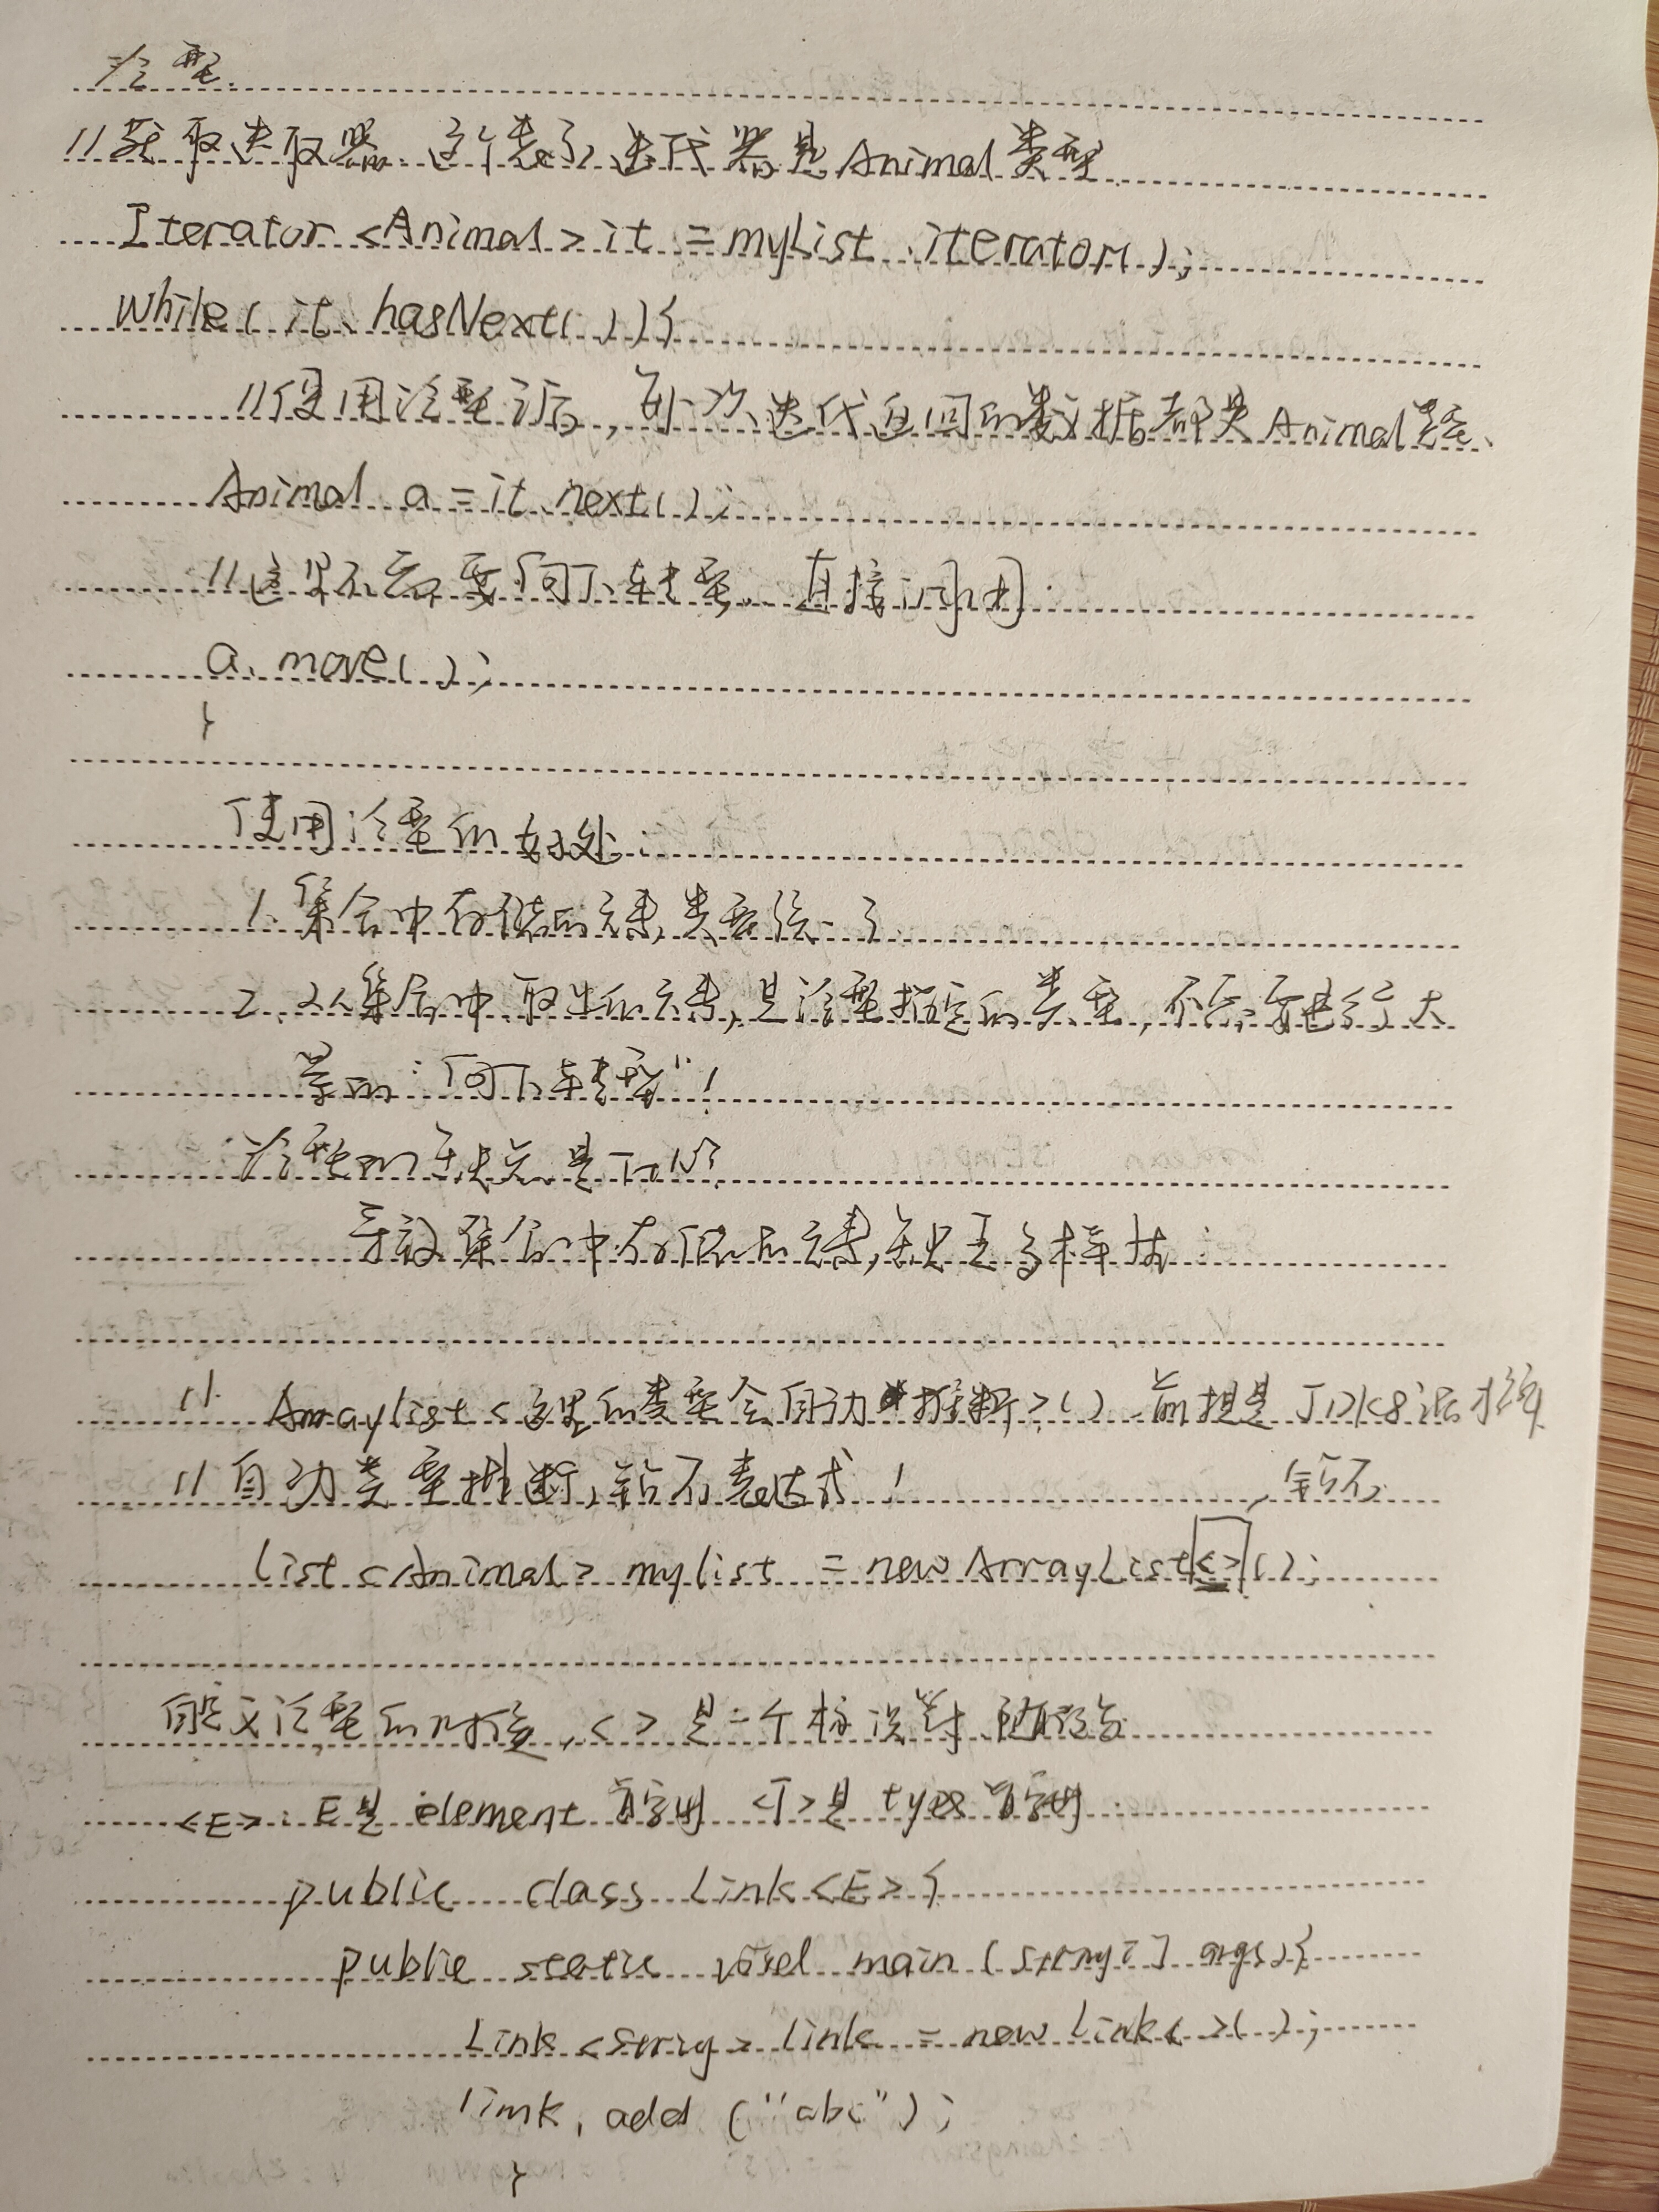 泛型.
//获取迭取器.这个表示迭代器是Animal类型
Iterator <Animal> it = myList.iterator();
while(it.hasNext()){
//使用泛型之后,每一次迭代返回的数据都是Animal类型、
Animal a = it.next();
//这里不需要向下转型.直接调用:
a.move();
}
使用泛型的好处:
1.集合中存储的元素类型统一了
2.从集合中取出的元素,是泛型指定的类型,不需要进行大
量的"向下转型"!
泛型的缺点是什么?
导致集合中存储的元素,缺乏多样性:
// Arraylist<这里的类型会自动推断>() 前提是JDK8之后才行
//自动类型推断,钻石表达式!
钻石
List<Animal> mylist = new ArrayList<>();
自定义泛型的时候,<>是一个标识符.随便写
<E>:E是element首字母 <T>是type首字母.
public class Link<E>{
public static void main(String[] args){
Link<String> link = new Link<>();
link.add("abc");
}